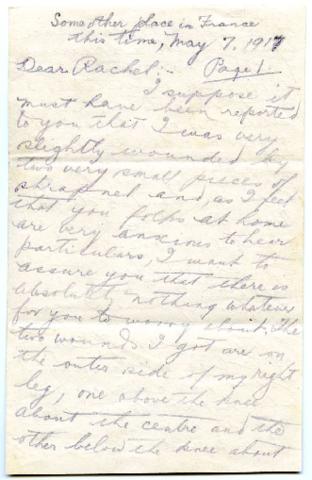 Some other place in France
this time, May 7, 1917
Dear Rachel:- Page 1
I suppose it
must have been reported
to you that I was very
slightly wounded by
two very small pieces of
shrapnel and, as I feel
that you folks at home
are very anxious to hear
particulars, I want to
assure you that there is
absolutely nothing whatever
for you to worry about. The
two wounds I got are on
the outer side of my right
leg, one above the knee
about the centre and the
other below the knee about